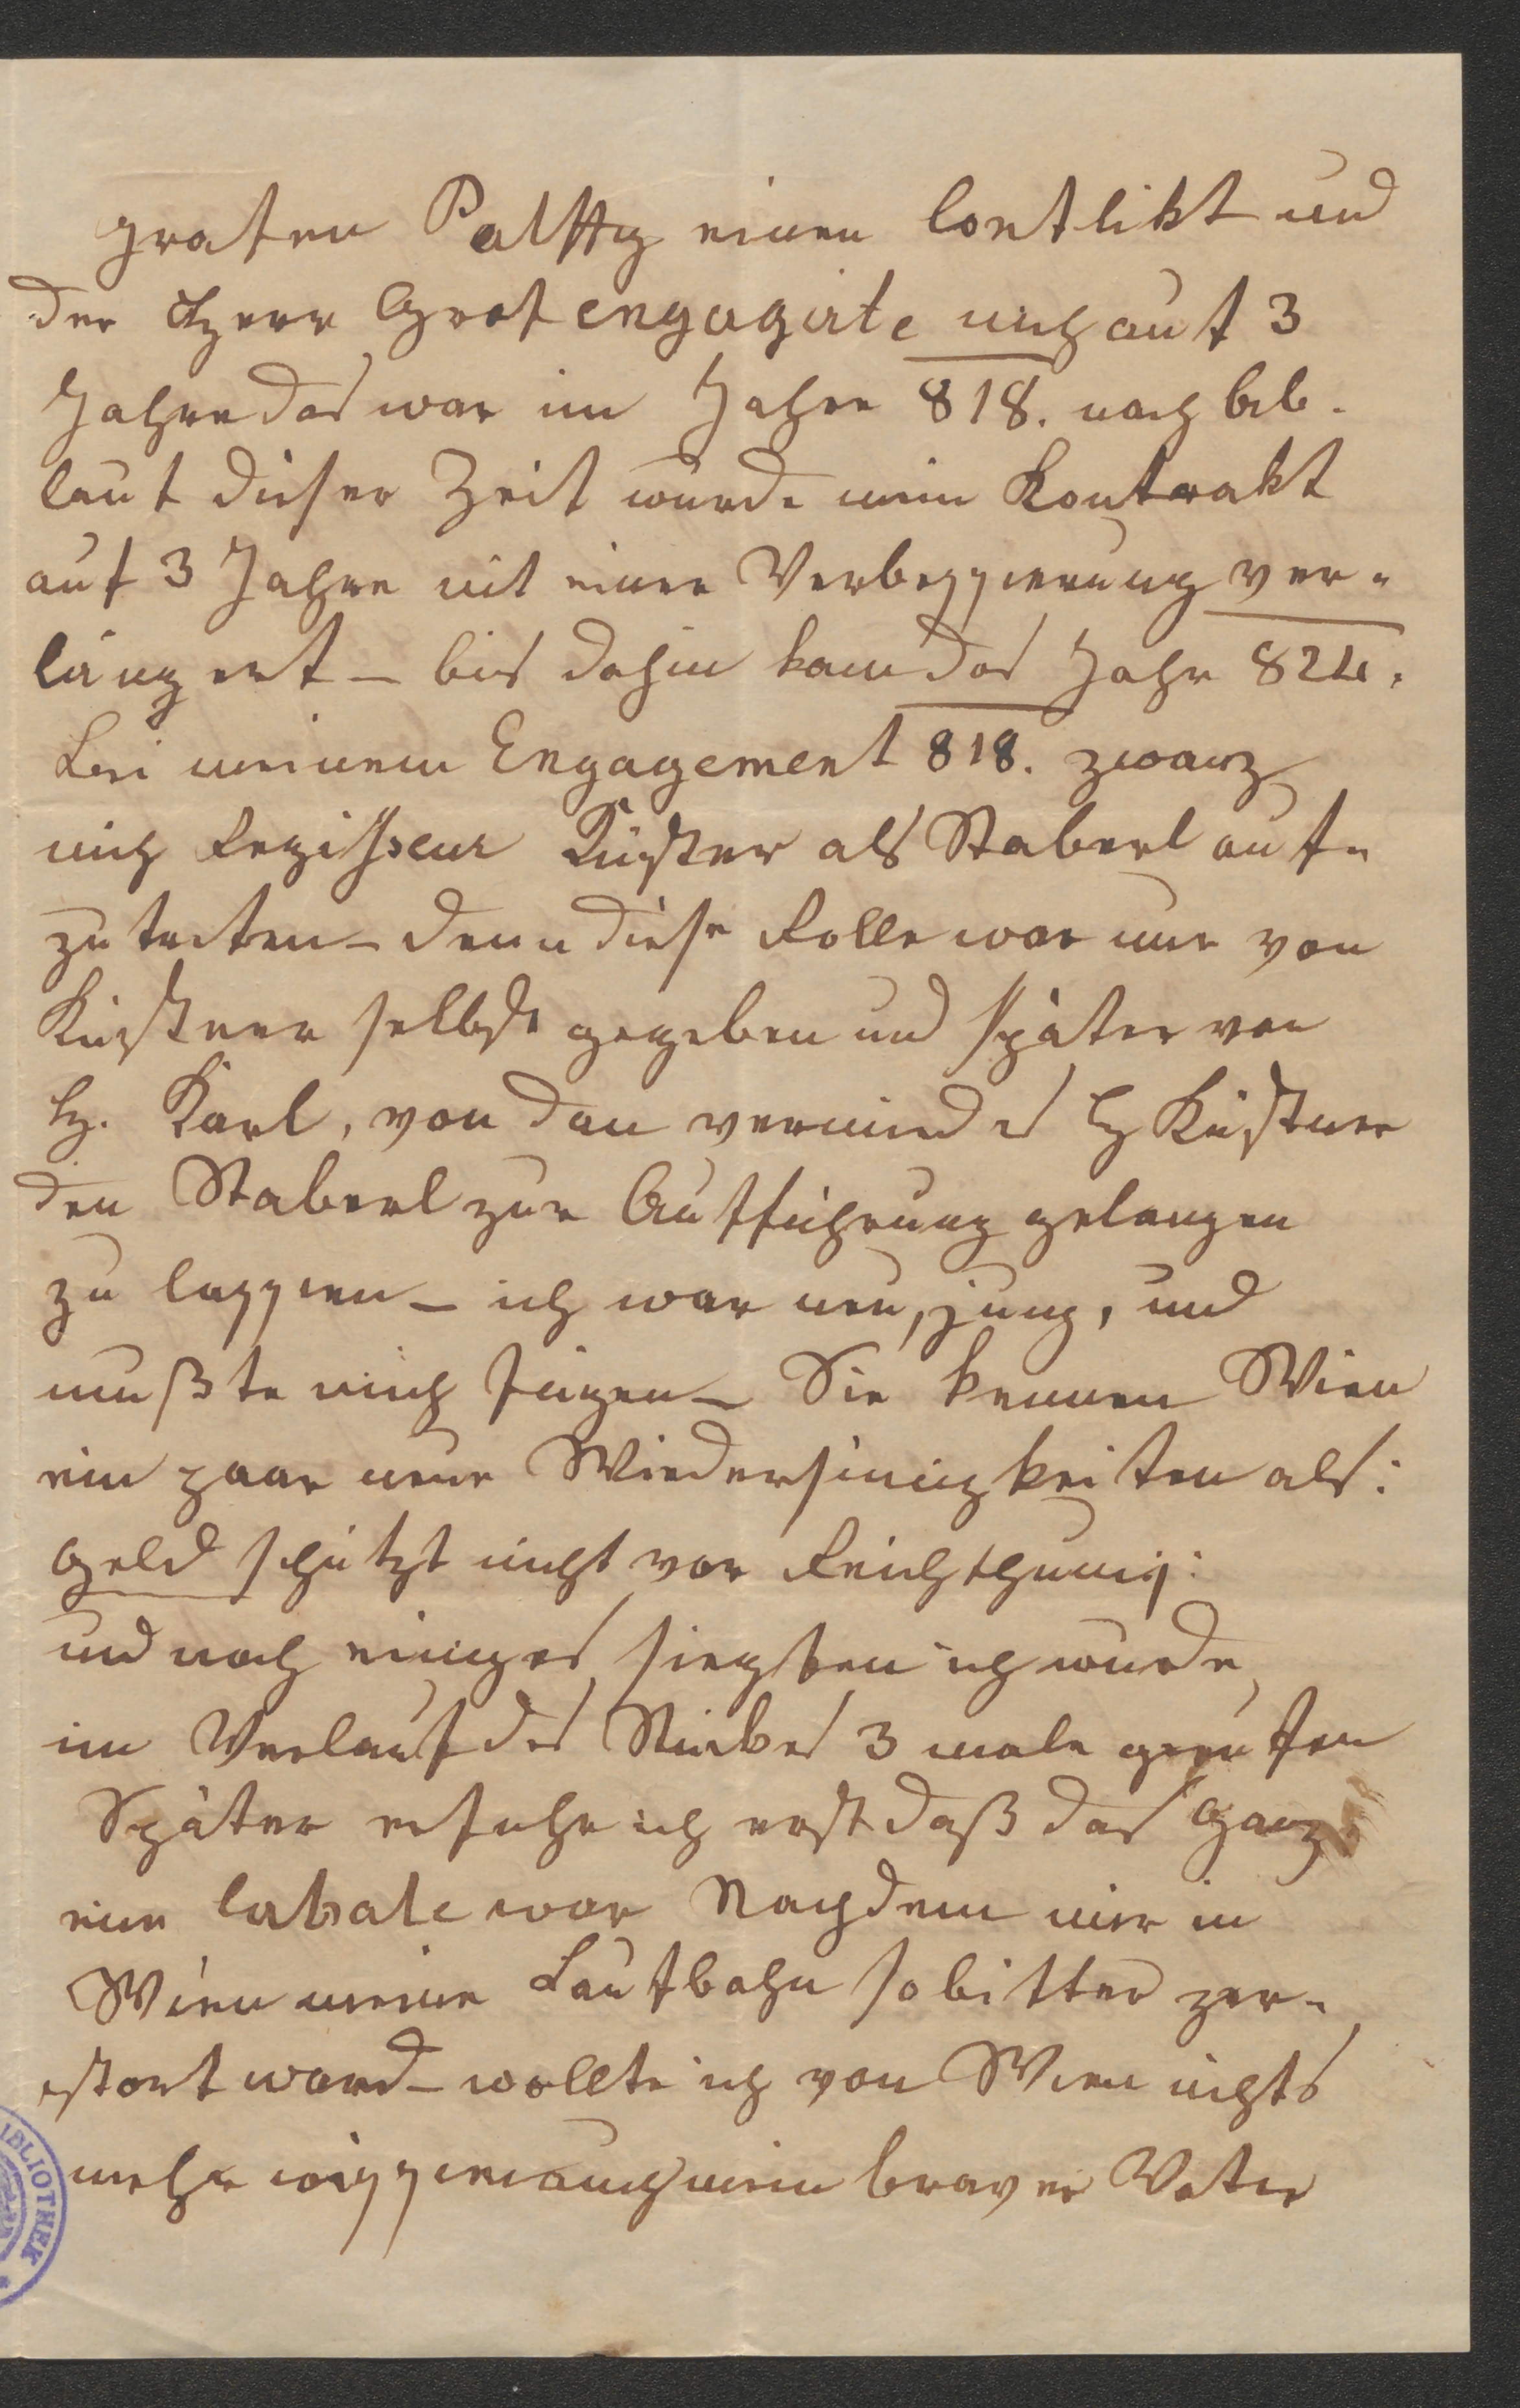 grafen Palffy einen Conflikt und
der Herr Graf engagirte mich auf 3
Jahre das war im Jahre 818. nach Ab-
lauf dieser Zeit wurde mein Kontrakt
auf 3 Jahre mit einer Verbesserung ver-
längert – bis dahin kam das Jahr 824.
Bei meinem Engagement 818. zwang
mich Regisseur Küster als Staberl auf-
zutreten – denn diese Rolle war nur von
Küstner selbst gegeben und später von
H. Karl, von dan vermied es H Küstner
den Staberl zur Aufführung gelangen
zu lassen – ich war neu, jung, und
mußte mich fügen – Sie kennen Wien
ein paar neue Wiedersinigkeiten als:
Geld schützt nicht vor Reichthum:
und noch einiges siegten ich wurde
im Verlauf des Stückes 3 male gerufen
Später erfuhr ich erst daß das Ganze
eine Cabale war Nachdem mir in
Wien meine Laufbahn so bitter zer-
stört ward – wollte ich von Wien nichts
mehr wissen auch mein braver Vater
BIBLIOTHEK